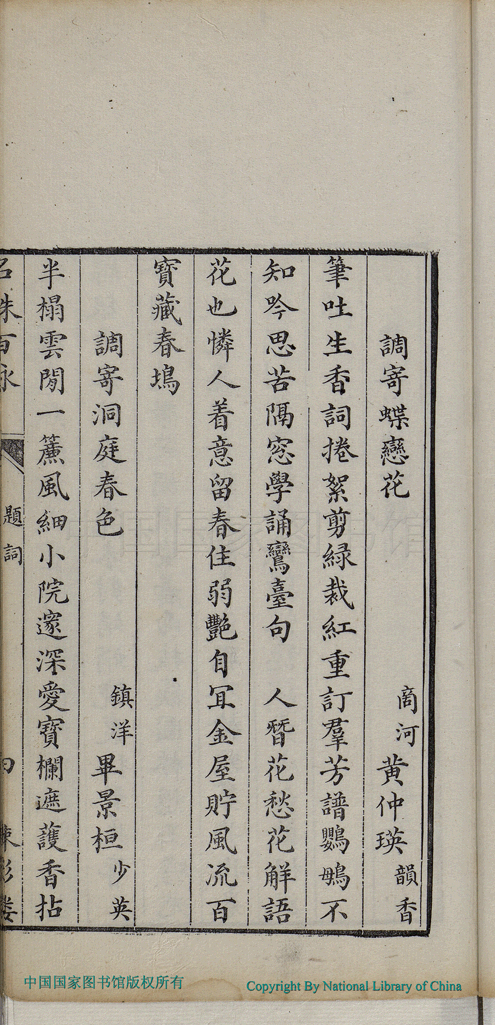 調寄蝶戀花 商河 黃仲瑛 韻香
筆吐生香詞捲絮剪綠裁紅重訂羣芳譜鸚䳇不
知吟思苦隔窓學誦鸞臺句 人替花愁花解語
花也憐人着意留春住弱艷自冝金屋貯風流百
寶藏春塢
調寄洞庭春色 鎮洋 畢景桓 少英
半榻雲閒一簾風細小院邃深愛寶欄遮護香拈
題詞
中国国家图书馆
中国国家图书馆版权所有
Copyright By National Library of China